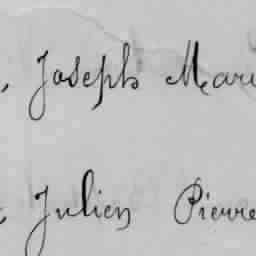 , Joseph Mari
Julien Pierre